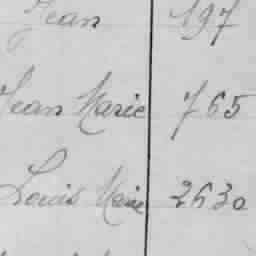 Jean 197
Jean Marie 765
Louis Marie 2630